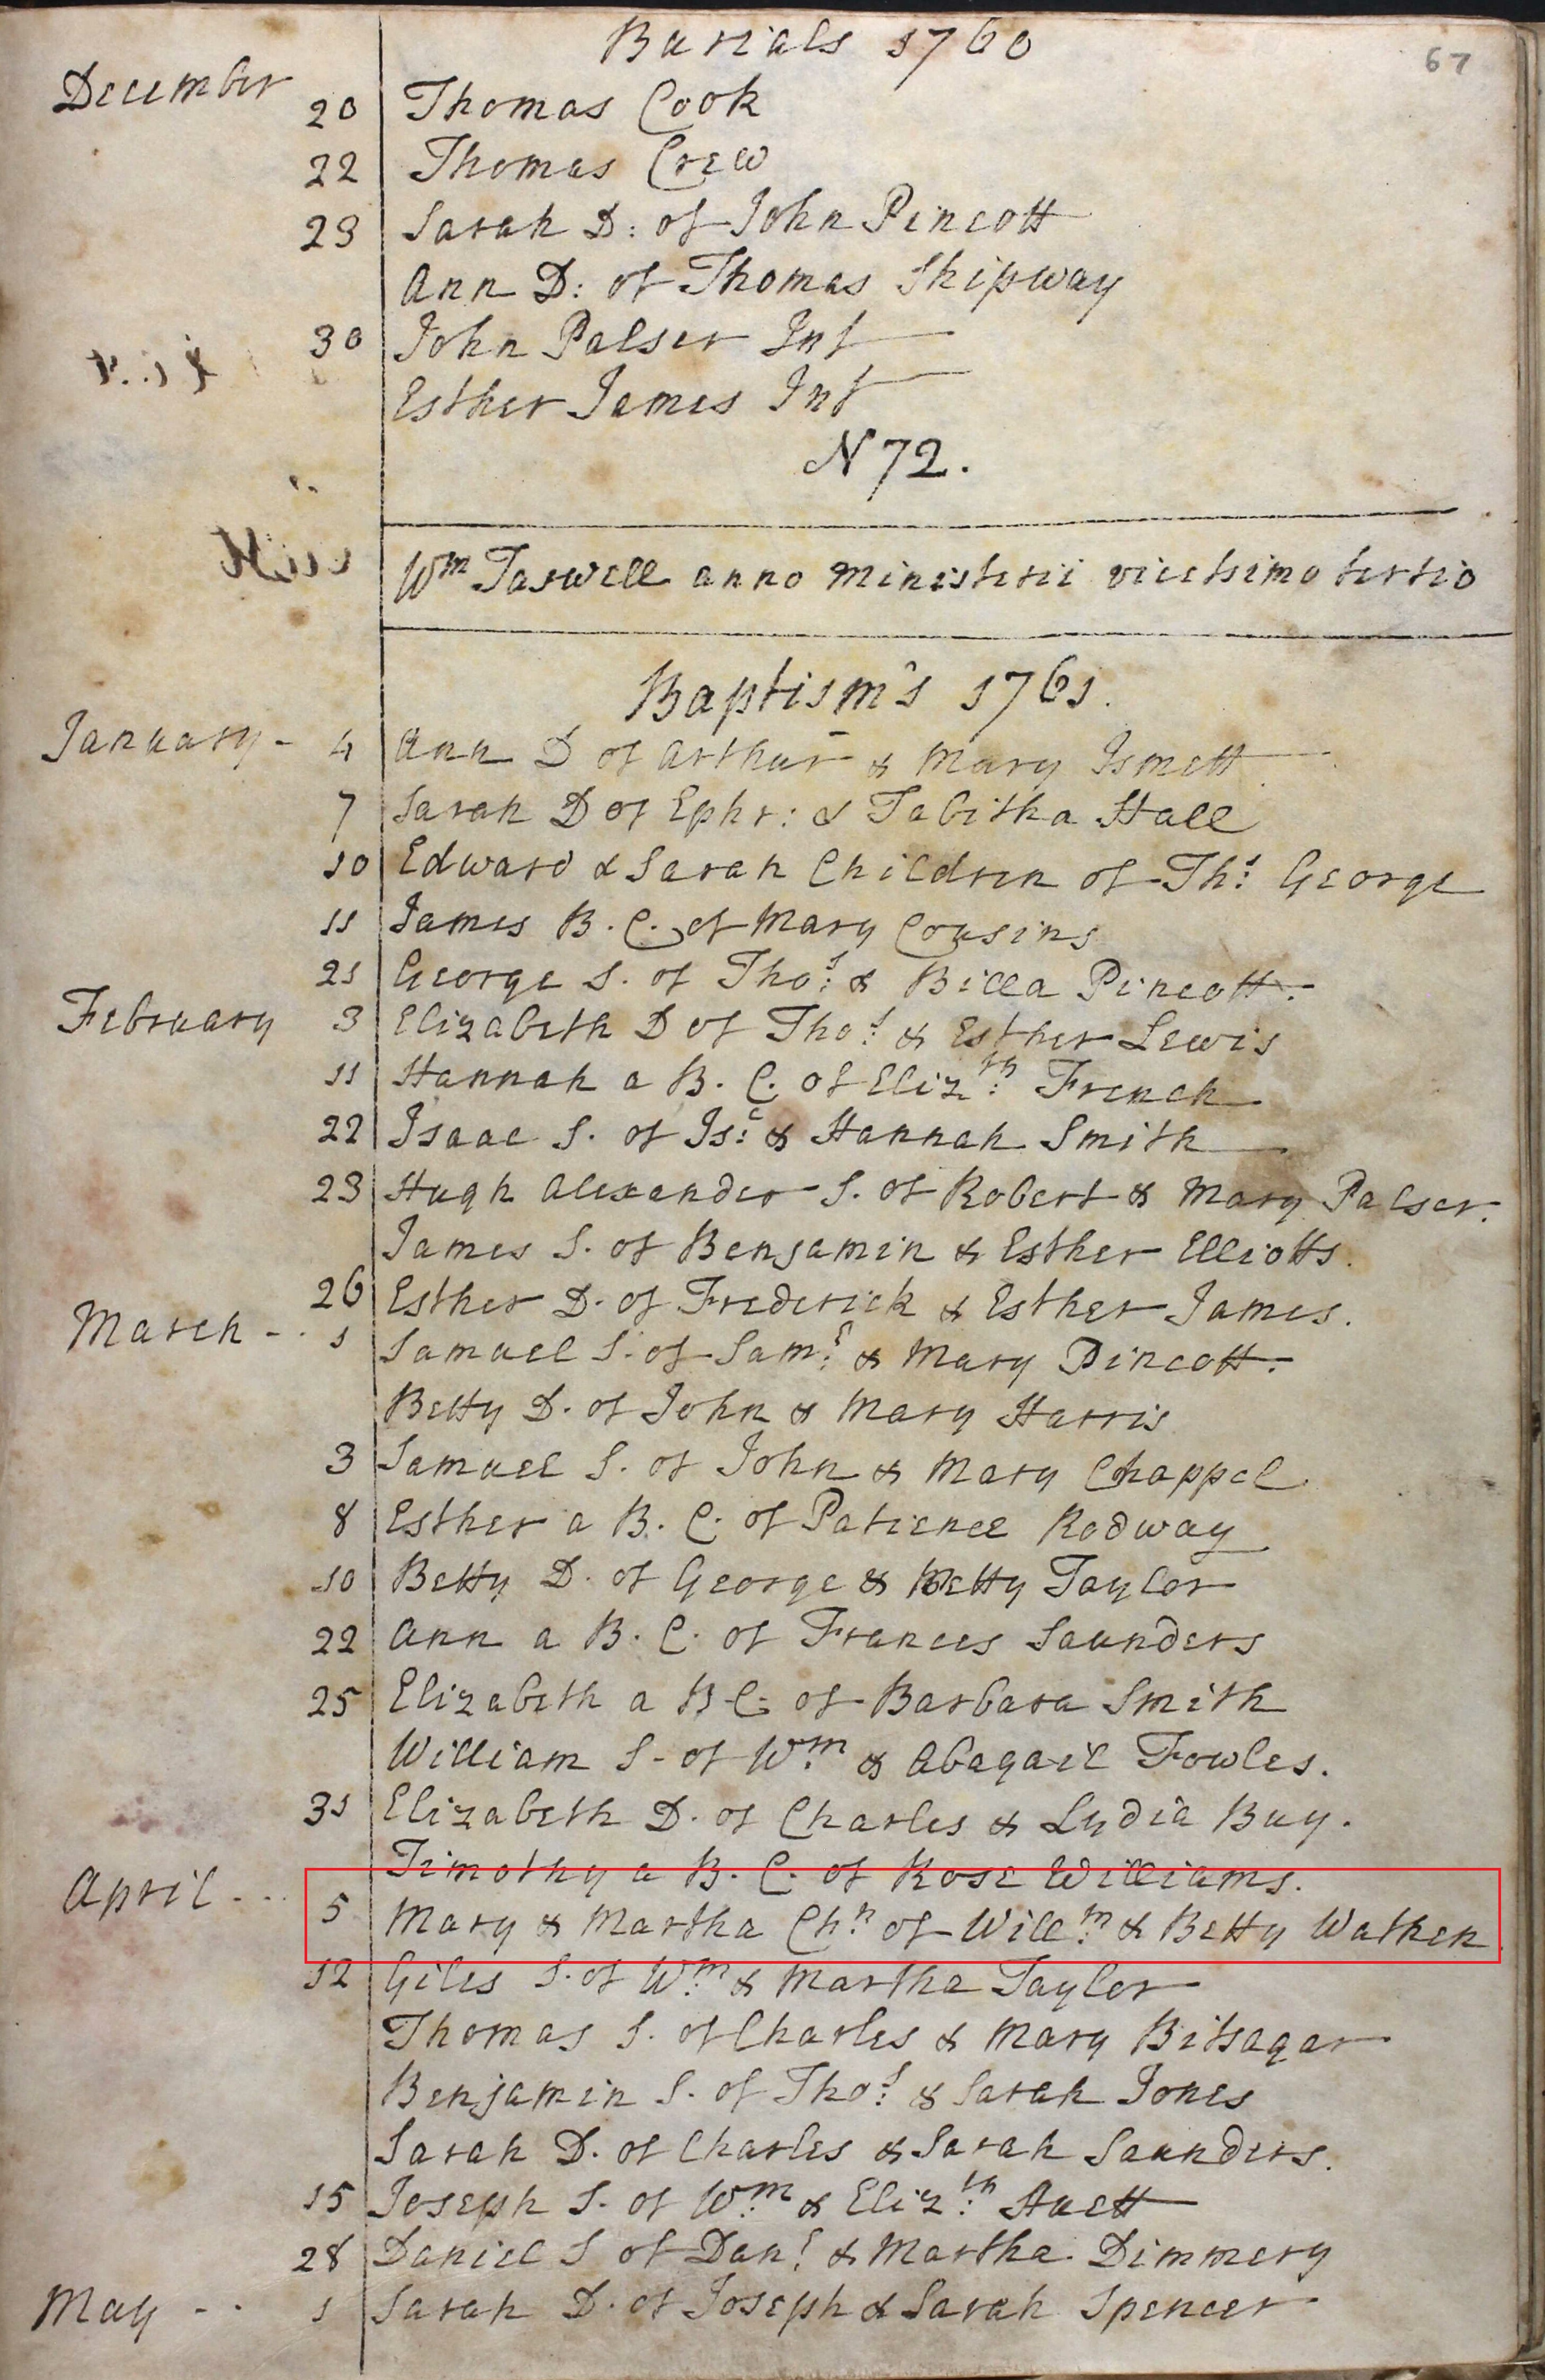 67
Burials 1760
December 20 Thomas Cook
22 Thomas Crew
23 Sarah D: of John Pincott
Ann D: of Thomas Shipway
30 John Palser Inf
Esther James Inf
N 72.
Wm Taswell anno Ministerii vicessimo tertio
Baptism's 1761.
January - 4 Ann D of Arthur & Mary Ismett
7 Sarah D of Ephr: & Tabitha Hall
10 Edward & Sarah Children of Ths: George
11 James B. C. of Mary Cousins
21 George S. of Thos: & Billa Pincott.
February 3 Elizabeth D of Thos: & Esther Lewis
11 Hannah a B. C. of Elizth: French
22 Isaac S. of Isc: & Hannah Smith
23 Hugh Alexander S. of Robert & Mary Palser.
James S. of Benjamin & Esther Elliotts.
26 Esther D. of Frederick & Esther James.
March - . 1 Samuel S. of Saml: & Mary Pincott.
Betty D. of John & Mary Harris
3 Samuel S. of John & Mary Chappel
8 Esther a B. C. of Patience Rodway
10 Betty D. of George & Betty Taylor
22 Ann a B. C. of Frances Saunders
25 Elizabeth a B C. of Barbara Smith
William S. of Wm: & Abagail Fowles.
31 Elizabeth D. of Charles & Lydia Buy.
Timothy a B. C. of Rose Williams.
April - . . 5 Mary & Martha Chn: of Willm: & Betty Wathen
12 Giles S. of Wm: & Martha Taylor
Thomas S. of Charles & Mary Bitsagar
Benjamin S. of Thos: & Sarah Jones
Sarah D. of Charles & Sarah Saunders.
15 Joseph S. of Wm: & Elizth: Huett
28 Daniel S of Danl: & Martha Dimmery
May - . 1 Sarah D. of Joseph & Sarah Spencer